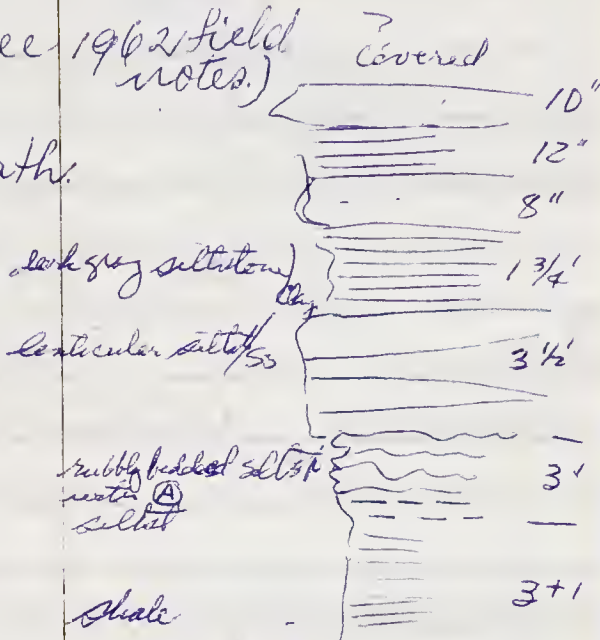 ee 1962 field
notes.)
Covered
10"
12"
ath.
8"
dark gray siltstone
Clay
1 3/4'
lenticular siltst/ss
3 1/2'
rubbly bedded siltst
Ⓐ
siltst
3'
shale
3+'